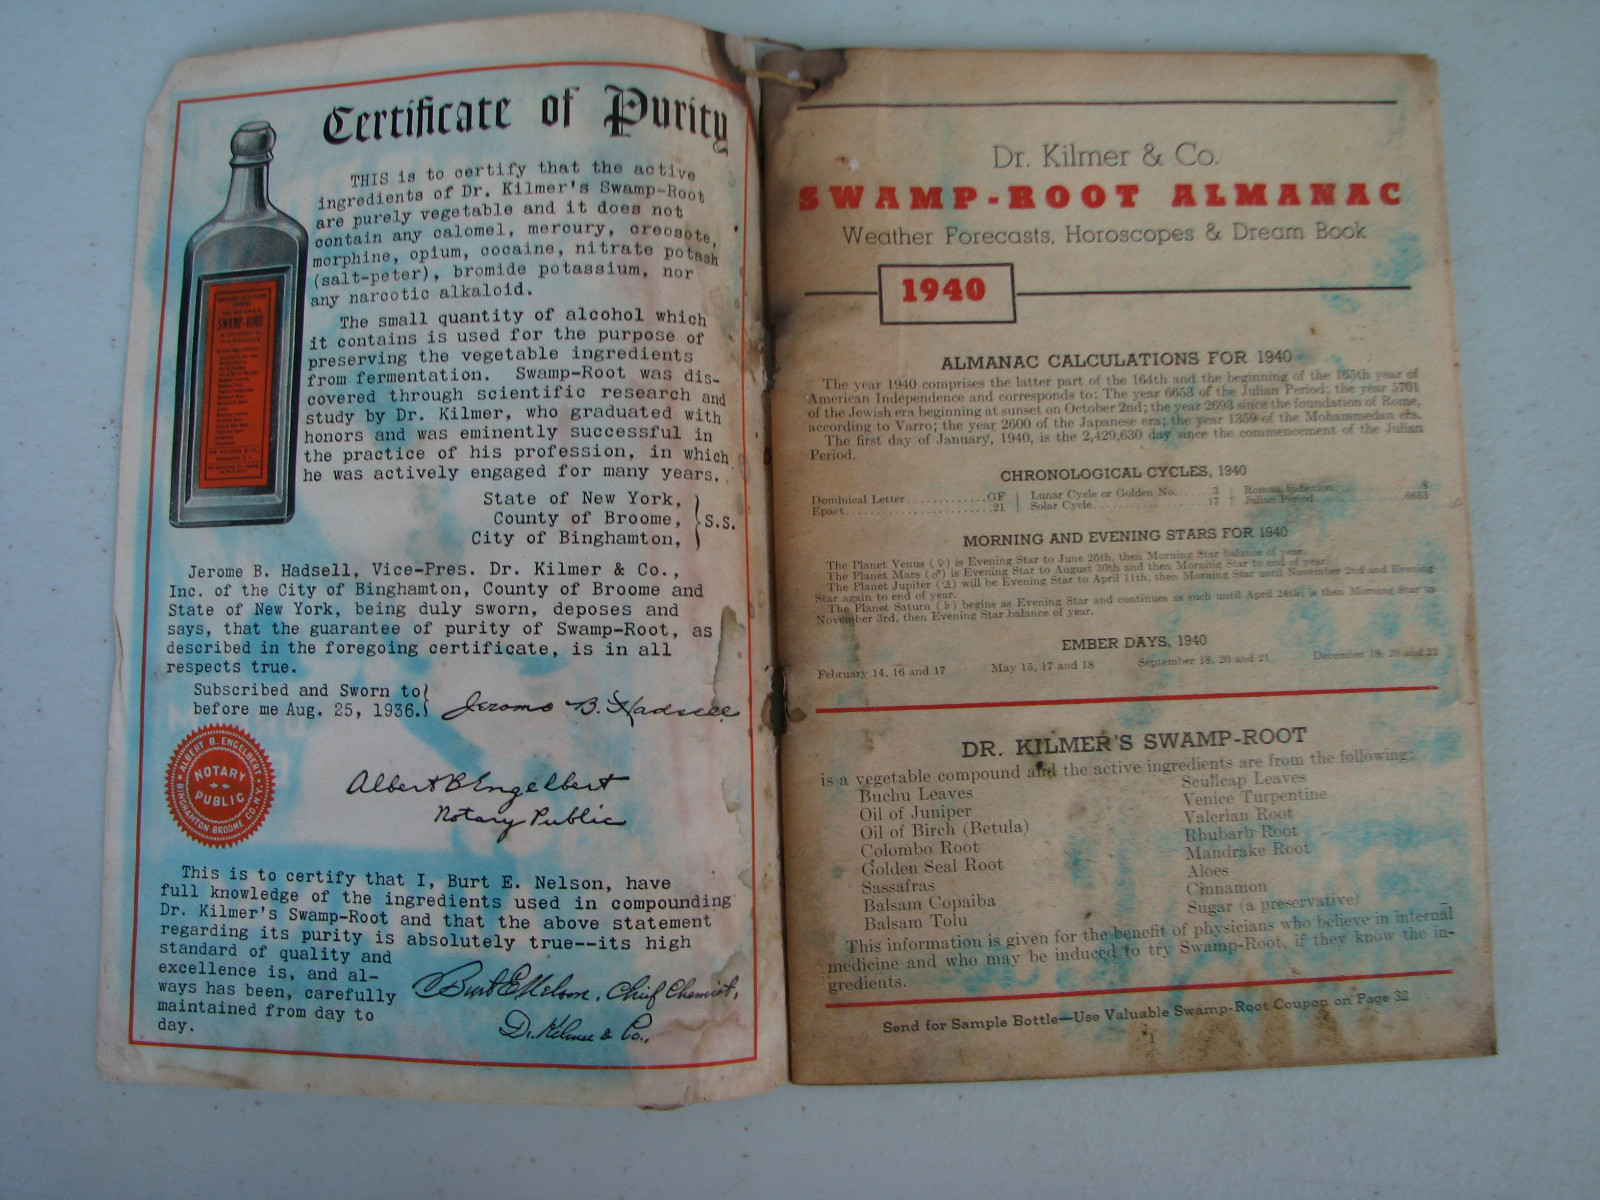 Certificate of Purity
THIS is to certify that the active
ingredients of Dr. Kilmer's Swamp-Root
are purely vegetable and it does not
contain any calomel, mercury, creosote,
morphine, opium, cocaine, nitrate potash
(salt-peter), bromide potassium, nor
any narcotic alkaloid.
The small quantity of alcohol which
it contains is used for the purpose of
preserving the vegetable ingredients
from fermentation. Swamp-Root was dis-
covered through scientific research and
study by Dr. Kilmer, who graduated with
honors and was eminently successful in
the practice of his profession, in which
he was actively engaged for many years.
SWAMP-ROOT
State of New York,
County of Broome, } S.S.
City of Binghamton,
Jerome B. Hadsell, Vice-Pres. Dr. Kilmer & Co.,
Inc. of the City of Binghamton, County of Broome and
State of New York, being duly sworn, deposes and
says, that the guarantee of purity of Swamp-Root, as
described in the foregoing certificate, is in all
respects true.
Subscribed and Sworn to
before me Aug. 25, 1936. } Jerome B. Hadsell
Albert B Engelbert
Notary Public
ALBERT B. ENGELBERT
NOTARY
PUBLIC
BINGHAMTON BROOME CO. N.Y.
This is to certify that I, Burt E. Nelson, have
full knowledge of the ingredients used in compounding
Dr. Kilmer's Swamp-Root and that the above statement
regarding its purity is absolutely true--its high
standard of quality and
excellence is, and al-
ways has been, carefully
maintained from day to
day.
Burt E Nelson, Chief Chemist,
Dr. Kilmer & Co.,
Dr. Kilmer & Co.
SWAMP-ROOT ALMANAC
Weather Forecasts, Horoscopes & Dream Book
1940
ALMANAC CALCULATIONS FOR 1940
The year 1940 comprises the latter part of the 164th and the beginning of the 165th year of
American Independence and corresponds to: The year 6653 of the Julian Period; the year 5701
of the Jewish era beginning at sunset on October 2nd; the year 2693 since the foundation of Rome,
according to Varro; the year 2600 of the Japanese era; the year 1359 of the Mohammedan era.
The first day of January, 1940, is the 2,429,630 day since the commencement of the Julian
Period.
CHRONOLOGICAL CYCLES, 1940
Dominical Letter.............GF | Lunar Cycle or Golden No......3 | Roman Indiction...............8
Epact........................21 | Solar Cycle..................17 | Julian Period..............6653
MORNING AND EVENING STARS FOR 1940
The Planet Venus (♀) is Evening Star to June 26th, then Morning Star balance of year.
The Planet Mars (♂) is Evening Star to August 30th and then Morning Star to end of year.
The Planet Jupiter (♃) will be Evening Star to April 11th, then Morning Star until November 2nd and Evening
Star again to end of year.
The Planet Saturn (♄) begins as Evening Star and continues as such until April 24th; is then Morning Star to
November 3rd, then Evening Star balance of year.
EMBER DAYS, 1940
February 14, 16 and 17 May 15, 17 and 18 September 18, 20 and 21 December 18, 20 and 21
DR. KILMER'S SWAMP-ROOT
is a vegetable compound and the active ingredients are from the following:
Buchu Leaves
Oil of Juniper
Oil of Birch (Betula)
Colombo Root
Golden Seal Root
Sassafras
Balsam Copaiba
Balsam Tolu
Scullcap Leaves
Venice Turpentine
Valerian Root
Rhubarb Root
Mandrake Root
Aloes
Cinnamon
Sugar (a preservative)
This information is given for the benefit of physicians who believe in internal
medicine and who may be induced to try Swamp-Root, if they know the in-
gredients.
Send for Sample Bottle—Use Valuable Swamp-Root Coupon on Page 32
1